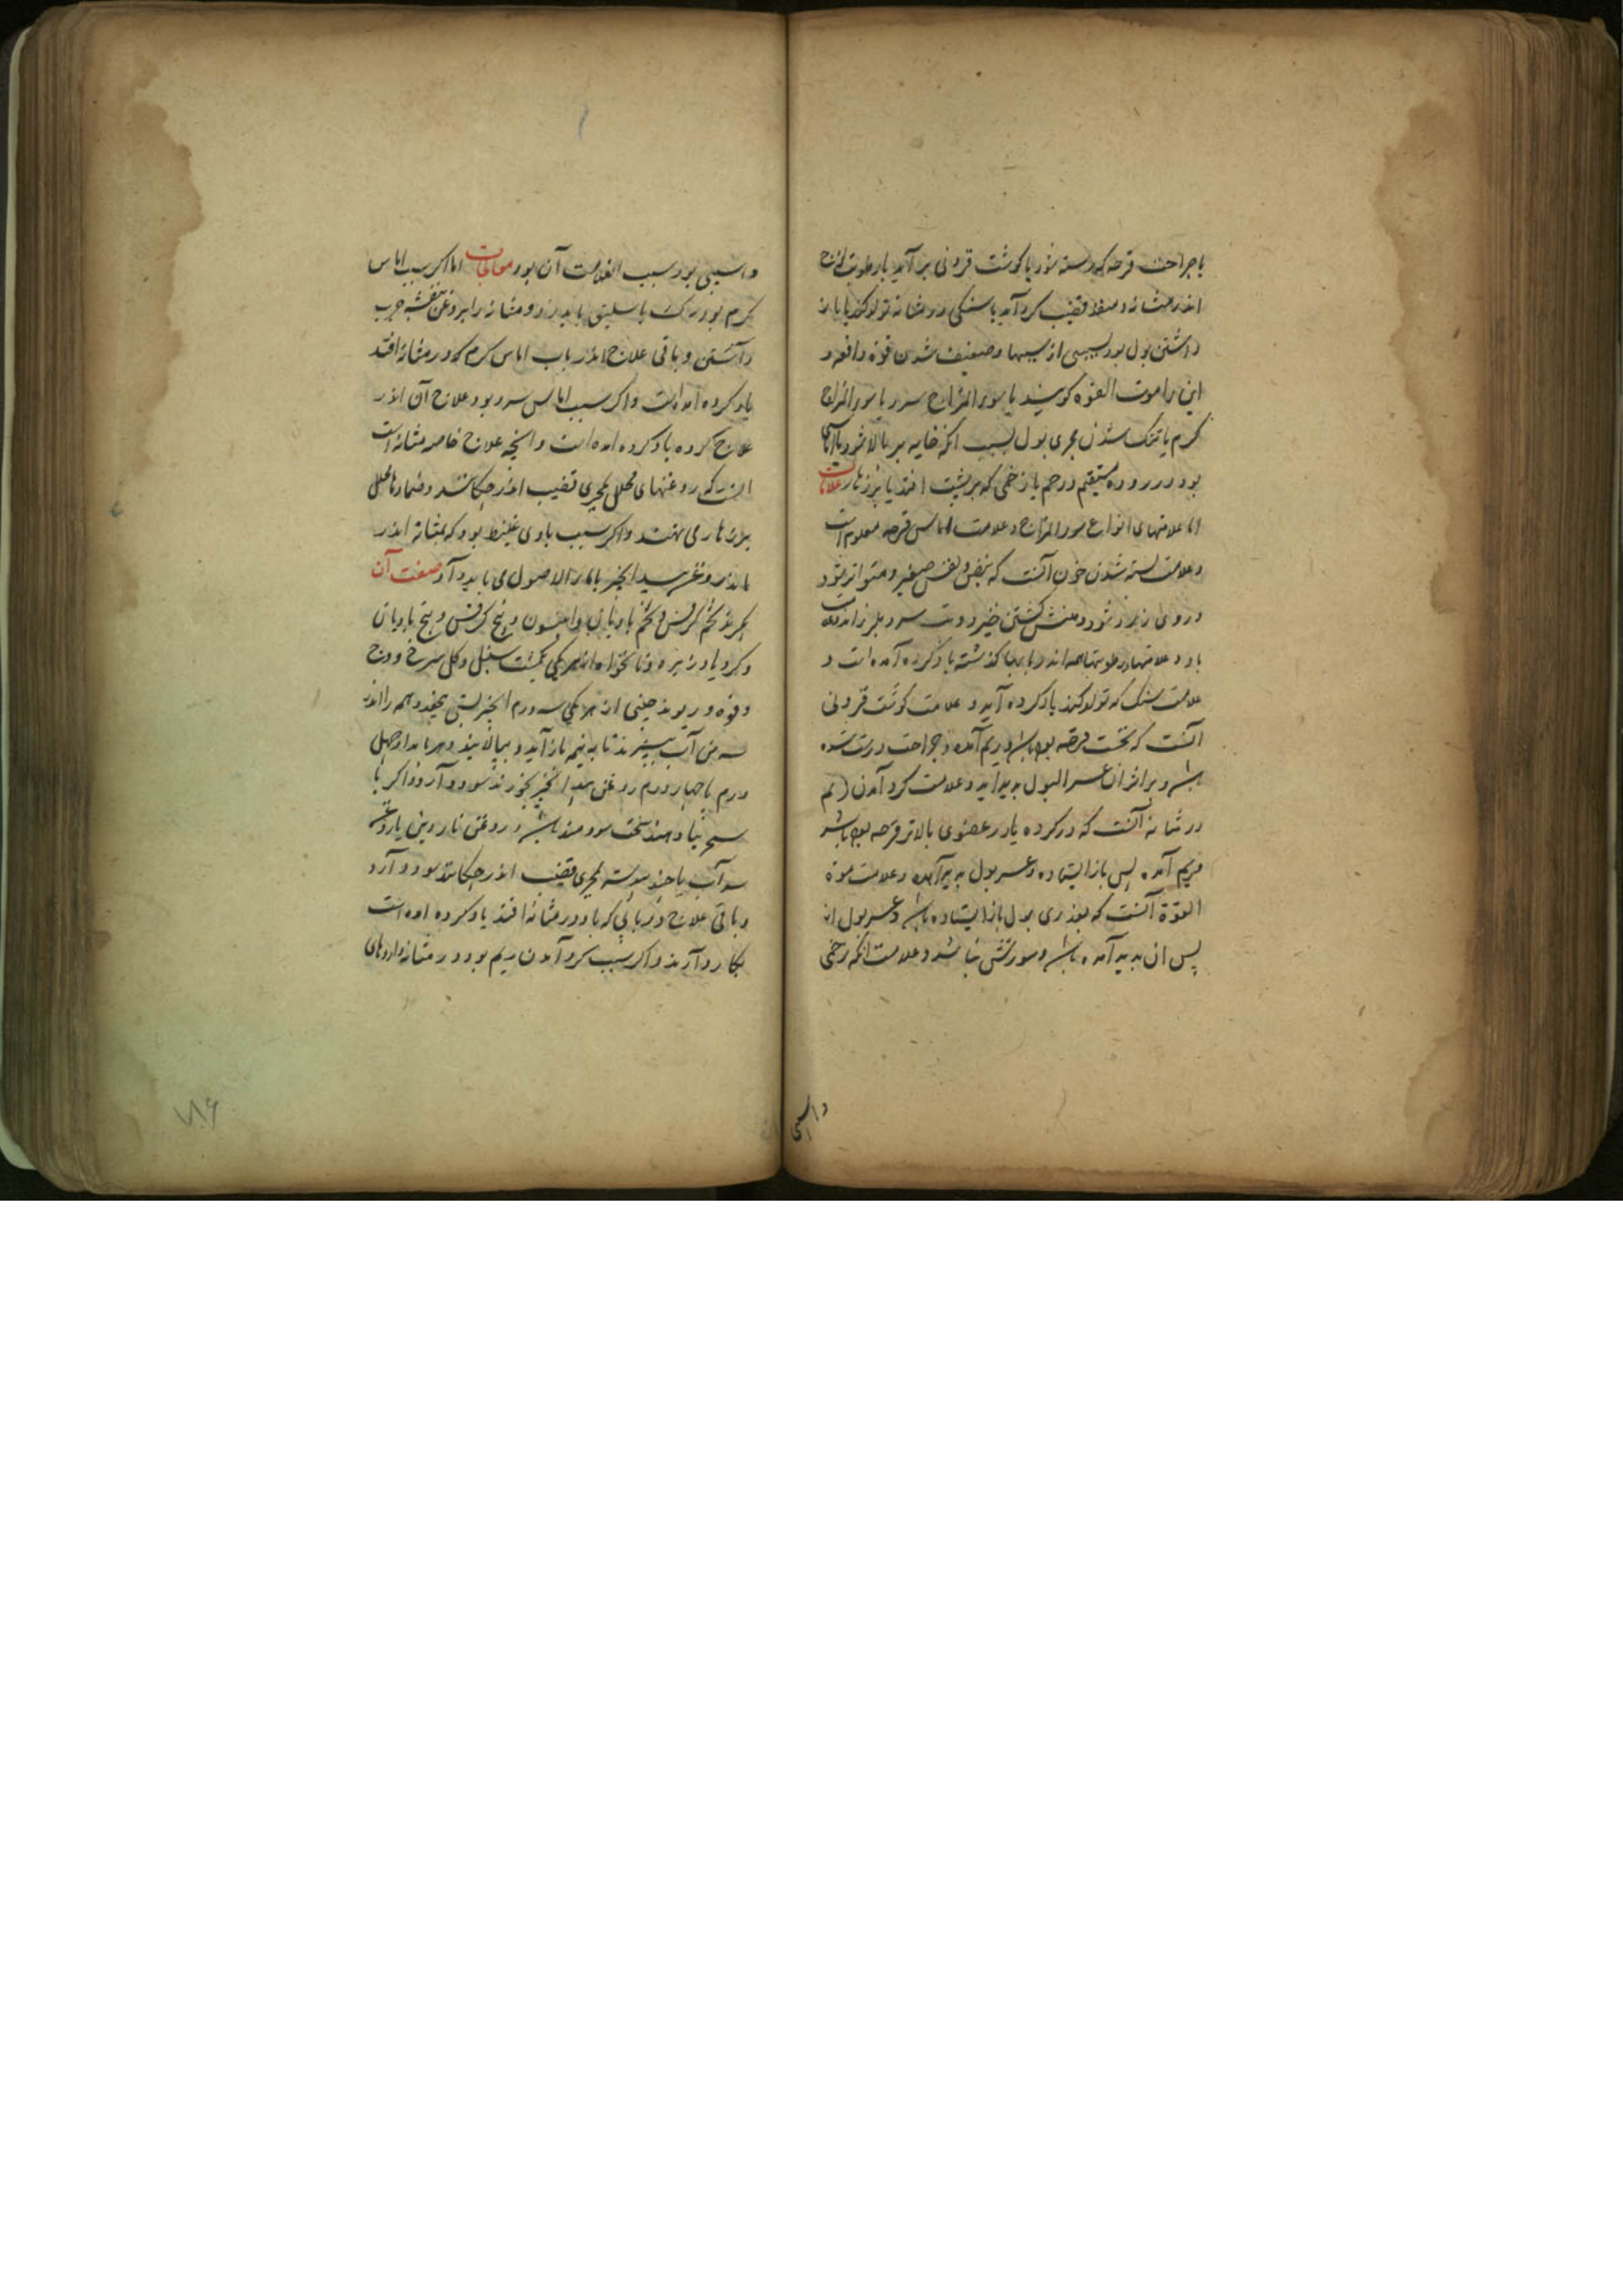 یا جراحت قرحه که رسته شود یا کوشت فزونی بر آید یا رطوبت لزج
اندر مثانه و منفذ قضیب کرد آید یا سنکی در مثانه تولد کند یا باز
داشتن بول بود بسببی از سببها و ضعیف شدن قوة دافعه و
این را موت القوه کویند یا سوء المزاج سرد یا سوء المزاج
کرم یا تنک شدن مجری بول بسبب انکه خایه بر بالا شود یا آماسی
بود در روده مستقیم و رحم یا زخمی که بر پشت افتد یا بر زهار علامات
اما علامتهای انواع سوء المزاج و علامت اماس قرحه معلوم است
و علامت بسته شدن خون آنست که نبض و نفس صغیر و متواتر شود
و روی زرد شود و منش کشتن خیزد و تب سرد بلرزاند
باد و علامتهاء رطوبتها همه اندر بابها کذشته یاد کرده آمده است و
علامت سنک که تولد کند یاد کرده آید و علامت کوشت فزونی
آنست که نخست قرحه بوده باشد و ریم آمده و جراحت درست شده
باشد و بر اثر ان عسر البول پدید اید و علامت کرد آمدن ریم
در مثانه آنست که در کرده یا در عضوی بالاتر قرحه بوده باشد
و ریم آمده پس باز ایستاده و عسر بول پدید آمده و علامت موة
القوة آنست که بقدری بول باز ایستاده باشد و عسر بول از
پس ان پدید آمده باشد و سوزش نباشد و علامت انکه زخمی
و اسیبی
و اسیبی بود سبب العلامت آن بود معالجات اما اکر سبب اماس
کرم بود رک باسلیق باید زد و مثانه را بروغن بنفشه چرب
داشتن و باقی علاج اندر باب اماس کرم که در مثانه افتد
یاد کرده امده است و اکر سبب اماس سرد بود علاج آن اندر
علاج کرده یاد کرده امده است و انچه علاج خاصه مثانه است
انست که روغنهای محلل بمجری قضیب اندر چکانند و ضمادهاء محلل
بر زهار می نهند و اکر سبب بادی غلیظ بود که بمثانه اندر
ماند روغن بید انجیر با ماء الاصول می باید داد صفت آن
بکیرند تخم کرفس و تخم بادیان و انیسون و بیخ کرفس و بیخ بادیان
و کرویا و زیره و نانخواه از هر یکی سنبل و کل سرخ و وج
و فوه و ریوند چینی از هر یکی سه درم انجیر بستی همه را اندر
سه من آب بپزند تا به نیم باز آید و بپالایند و هر بامداد چهل
درم با چهار درم روغن بید انجیر بخورند سود دارد و اکر با
دهند سخت سودمند باشد و روغن ناردین یا روغن
اندر چکانند سود دارد
و باقی علاج در بابی که باد در مثانه افتد یاد کرده امده است
بکار دارند و اکر سبب کرد آمدن ریم بود در مثانه داروهای